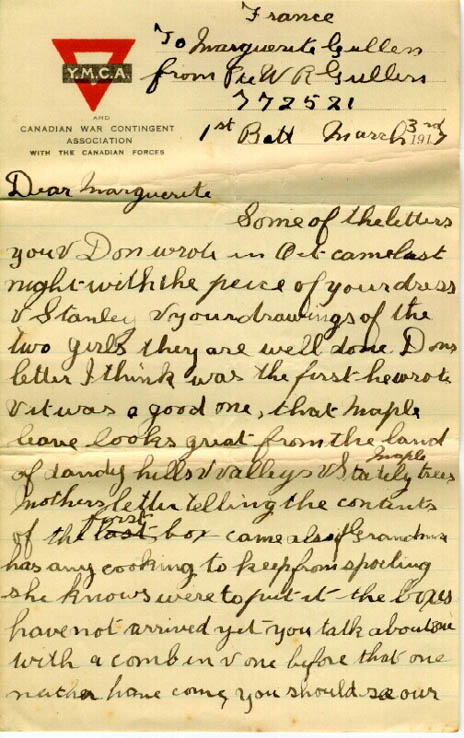 France
To Marguerite Gullen
from Pte W R Gullen
772521
1st Batt March 3rd 1917
Y.M.C.A.
AND
CANADIAN WAR CONTINGENT
ASSOCIATION
WITH THE CANADIAN FORCES
Dear Marguerite
Some of the letters
you & Don wrote in Oct came last
night with the peice of your dress
& Stanley & your drawings of the
two girls they are well done. Dons
letter I think was the first he wrote
& it was a good one, that maple
leave looks great from the land
of dandy hills & valleys & Stately maple trees
Mothers letter telling the contents
of the first box came also if Grandma
has any cooking to keep from spoiling
she knows were to put it the boxes
have not arrived yet you talk about one
with a comb in & one before that one
neither have come, you should see our